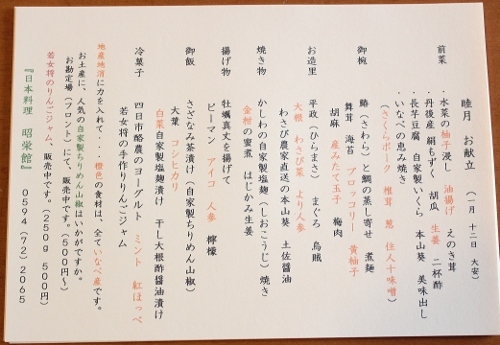 睦月　お献立　（一月　十二日　大安）
前菜
・水菜の柚子浸し　油揚げ　えのき茸
・丹後産　絹もずく　胡瓜　生姜　二杯酢
・長芋豆腐　自家製いくら　本山葵　美味出し
・いなべの恵み焼き
（さくらポーク　椎茸　葱　住人十味噌）
御椀　鰆（さわら）と鯛の蒸し寄せ　煮麺
舞茸　海苔　ブロッコリー　黄柚子
胡麻　産みたて玉子　梅肉
お造里　平政（ひらまさ）　まぐろ　烏賊
大根　わさび菜　より人参
わさび農家直送の本山葵　土佐醤油
焼き物　かしわの自家製塩麹（しおこうじ）焼き
金柑の蜜煮　はじかみ生姜
揚げ物　牡蠣真丈を揚げて
ピーマン　アイコ　人参　檸檬
御飯　さざなみ茶漬け（自家製ちりめん山椒）
大葉　コシヒカリ
白菜自家製塩麹漬け　干し大根酢醤油漬け
冷菓子　四日市酪農のヨーグルト　ミント　紅ほっぺ
若女将の手作りりんごジャム
地産地消に力を入れて・・橙色の食材は、全ていなべ産です。
お土産に、人気の自家製ちりめん山椒はいかがですか。
お勘定場（フロント）にて、販売中です。（５００円～）
若女将のりんごジャム、販売中です。（２５０ｇ　５００円）
『日本料理　昭栄館』　０５９４（７２）２０６５